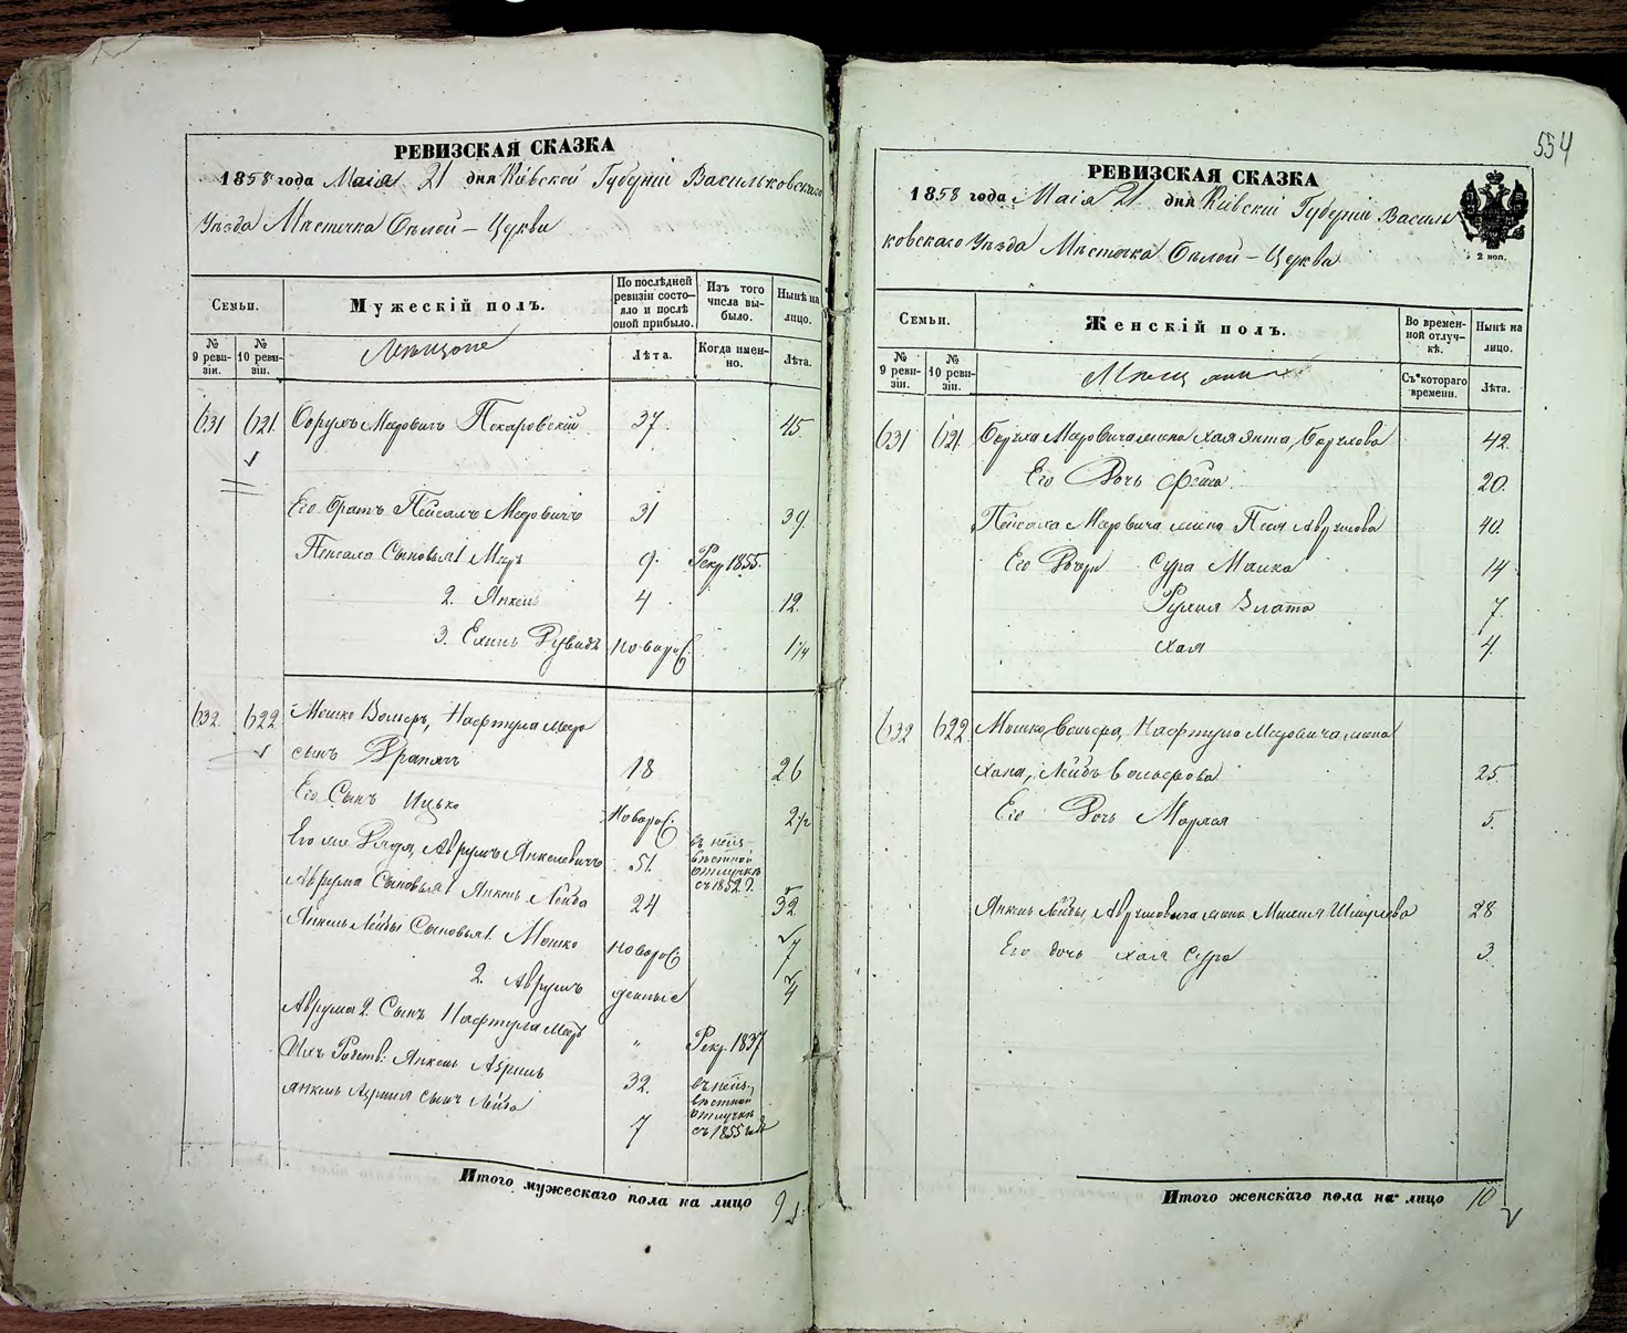 РЕВИЗСКАЯ СКАЗКА
1858 года Маія 21 дня Кіевской Губерніи Васильковскаго
Уѣзда Мѣстечка Бѣлой – Церкви
Семьи.
Мужескій полъ.
По послѣдней ревизіи состо-
яло и послѣ
оной прибыло.
Изъ того
числа вы-
было.
Нынѣ на
лицо.
№
9 реви-
зіи.
№
10 реви-
зіи.
Мѣщане
Лѣта.
Когда имен-
но.
Лѣта.
631 621 Борухъ Мееровичъ Пекаровскій 37 45
Его Братъ Пейсахъ Мееровичъ 31 39
Пейсаха Сыновья 1 Меер 9 Рекр. 1855.
2. Янкель 4 12.
3. Ехиль Рувинъ новорож. 1 1/4
632 622 Мошко Вольфъ, Нафтула Меер
сынъ 18 26
Его Сынъ Ицько Новорож. 2 1/2
Его же Дядя, Аврумъ Янкелевичъ 51. въ неиз-
вѣстной
отлучкѣ
съ 1852 г.
Аврума Сыновья 1 Янкель Лейба 24 32
Янкель Лейбы Сыновья 1. Мошко новорож 7
2. Аврумъ денные 4
Аврума 2 Сынъ Нафтула Меер " Рекр. 1837
Ихъ Родств: Янкель 32. въ неиз-
вѣстной
отлучкѣ
съ 1855 года
Янкель сынъ Лейба 7
Итого мужескаго пола на лицо 9
554
РЕВИЗСКАЯ СКАЗКА
1858 года Маія 21 дня Кіевской Губерніи Василь
ковскаго Уѣзда Мѣстечка Бѣлой – Церкви
2 коп.
Семьи.
Женскій полъ.
Во времен-
ной отлуч-
кѣ.
Нынѣ на
лицо.
№
9 реви-
зіи.
№
10 реви-
зіи.
Мѣщане
Съ котораго
времени.
Лѣта.
631 621 Боруха Меровича жена Хая Янта, 42
Его Дочь Фейга 20.
Пейсаха Меровича жена Песя Аврумова 40.
Его Дочери Сура Малка 14
Рухля Злата 7.
Хая 4.
632 622 Мошко Вольфа, Нафтула Меровича жена
Хана, Лейбъ Вольфова 25.
Его Дочь Маряся 5.
Янкель Лейбы Аврумовича жена 28
Его дочь Хая Сура 3.
Итого женскаго пола на лицо 10